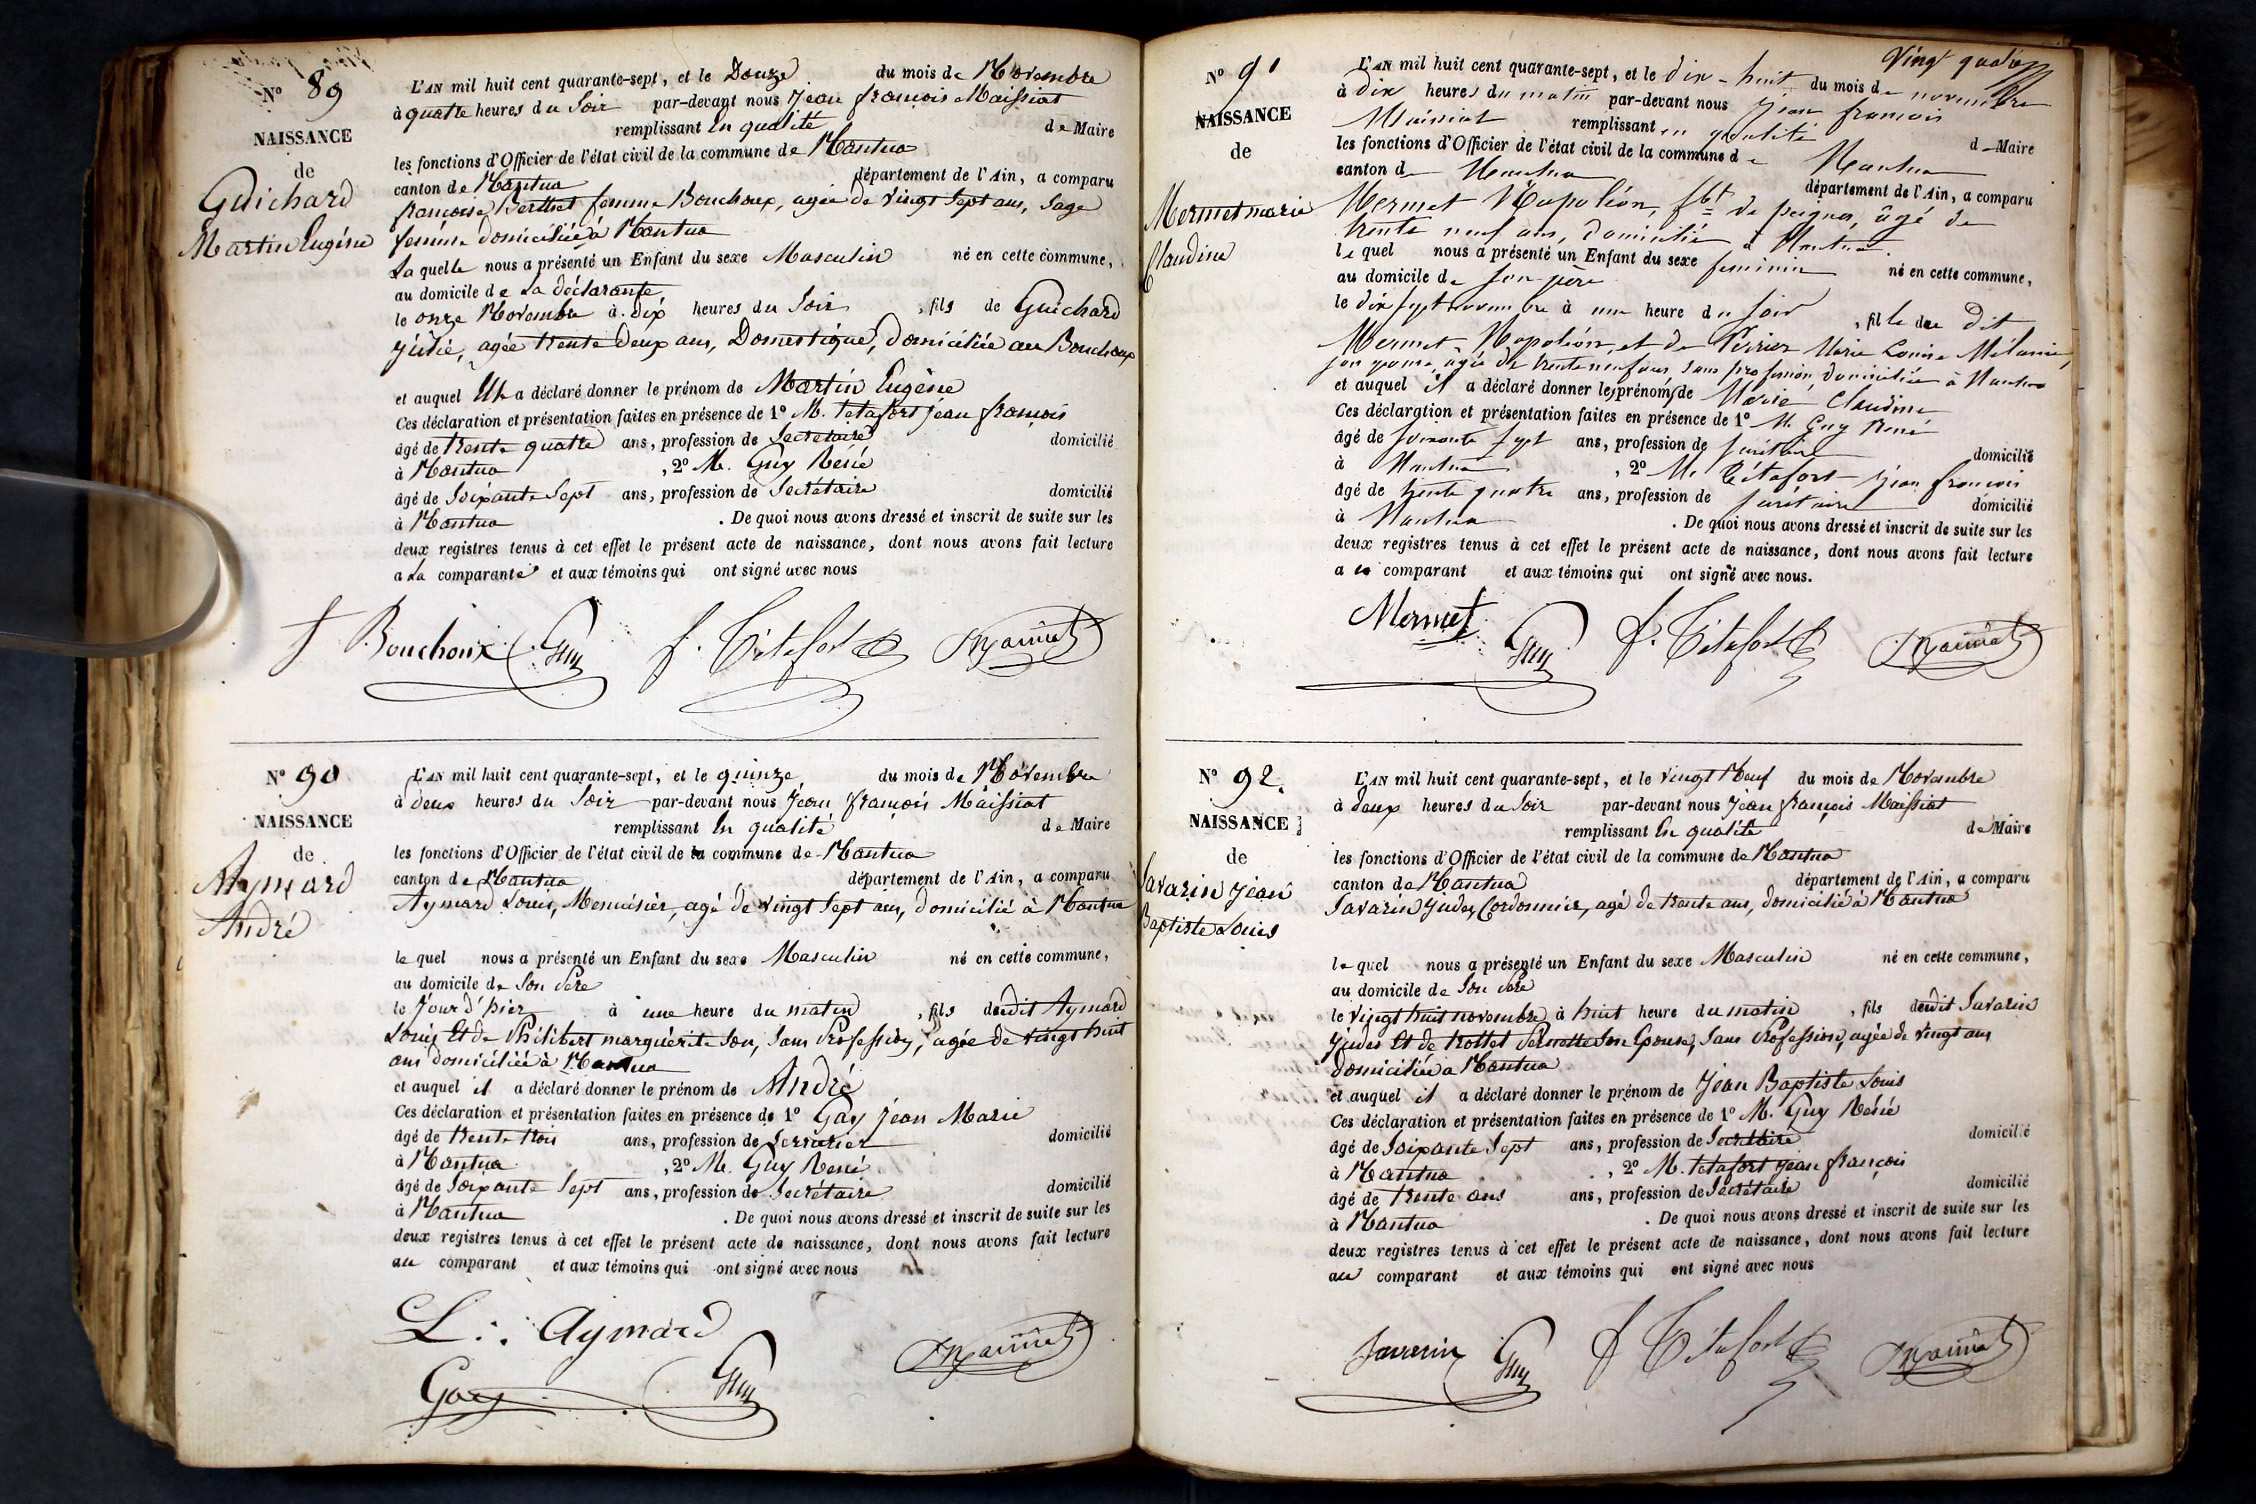 N° 89
NAISSANCE
de
Guichard
Martin Eugène
L'AN mil huit cent quarante-sept, et le Douze du mois de Novembre
à quatre heures du Soir par-devant nous Jean françois Maissiat
remplissant En qualité de Maire
les fonctions d'Officier de l'état civil de la commune de Nantua
canton de Nantua département de l'Ain, a comparu
françoise Berthet femme Bouchoux, agée de vingt Sept ans, Sage
femme domiciliée à Nantua
La quelle nous a présenté un Enfant du sexe Masculin né en cette commune,
au domicile de La déclarante
le onze Novembre à dix heures du Soir, fils de Guichard
Julie, agée trente deux ans, Domestique, domiciliée au Bouchoux
et auquel Elle a déclaré donner le prénom de Martin Eugène
Ces déclaration et présentation faites en présence de 1° M. Tétafort jean françois
âgé de trente quatre ans, profession de Secrétaire domicilié
à Nantua, 2° M. Guy Réné
âgé de Soixante Sept ans, profession de Secrétaire domicilié
à Nantua. De quoi nous avons dressé et inscrit de suite sur les
deux registres tenus à cet effet le présent acte de naissance, dont nous avons fait lecture
a La comparante et aux témoins qui ont signé avec nous
f Bouchoux Guy f. Tétafort Maissiat
N° 90
NAISSANCE
de
Aymard
André
L'AN mil huit cent quarante-sept, et le quinze du mois de Novembre
à deux heures du Soir par-devant nous Jean françois Maissiat
remplissant En qualité de Maire
les fonctions d'Officier de l'état civil de la commune de Nantua
canton de Nantua département de l'Ain, a comparu
Aymard Louis, Menuisier, agé de vingt Sept ans, domicilié à Nantua
le quel nous a présenté un Enfant du sexe Masculin né en cette commune,
au domicile de Son Père
le Jour d'hier à une heure du matin, fils dudit Aymard
Louis Et de Philibert marguérite Son, Sans Profession, agée de vingt huit
ans domiciliée à Nantua
et auquel il a déclaré donner le prénom de André
Ces déclaration et présentation faites en présence de 1° Gay Jean Marie
âgé de trente trois ans, profession de Serrurier domicilié
à Nantua, 2° M. Guy Réné
âgé de Soixante Sept ans, profession de Secrétaire domicilié
à Nantua. De quoi nous avons dressé et inscrit de suite sur les
deux registres tenus à cet effet le présent acte de naissance, dont nous avons fait lecture
au comparant et aux témoins qui ont signé avec nous
L. Aymard Maissiat
Gay Guy
Vingt quatre
N° 91
NAISSANCE
de
Mermet marie
Claudine
L'AN mil huit cent quarante-sept, et le dix-huit du mois de novembre
à dix heures du matin par-devant nous Jean françois
Maissiat remplissant en qualité de Maire
les fonctions d'Officier de l'état civil de la commune de Nantua
canton de Nantua département de l'Ain, a comparu
Mermet Napoléon, fbt de peignes, âgé de
trente neuf ans, domicilié à Nantua
le quel nous a présenté un Enfant du sexe feminin né en cette commune,
au domicile de son père
le dix sept novembre à une heure du soir, fille du dit
Mermet Napoléon, et de Perrier Marie Louise Mélanie,
son épouse, âgée de trente neuf ans, sans profession, domiciliée à Nantua
et auquel il a déclaré donner les prénoms de Marie Claudine
Ces déclaration et présentation faites en présence de 1° M. Guy René
âgé de soixante sept ans, profession de secrétaire domicilié
à Nantua, 2° M. Tétafort jean françois
âgé de trente quatre ans, profession de secrétaire domicilié
à Nantua. De quoi nous avons dressé et inscrit de suite sur les
deux registres tenus à cet effet le présent acte de naissance, dont nous avons fait lecture
a ce comparant et aux témoins qui ont signé avec nous.
Mermet Guy f. Tétafort Maissiat
N° 92.
NAISSANCE
de
Savarin Jean
Baptiste Louis
L'AN mil huit cent quarante-sept, et le vingt Neuf du mois de Novembre
à deux heures du Soir par-devant nous Jean françois Maissiat
remplissant En qualité de Maire
les fonctions d'Officier de l'état civil de la commune de Nantua
canton de Nantua département de l'Ain, a comparu
Savarin Judes, Cordonnier, agé de trente ans, domicilié à Nantua
le quel nous a présenté un Enfant du sexe Masculin né en cette commune,
au domicile de Son Père
le vingt huit novembre à huit heure du matin, fils dudit Savarin
Judes Et de trottet Pernette Son Epouse, Sans Profession, agée de vingt ans
domiciliée à Nantua
et auquel il a déclaré donner le prénom de Jean Baptiste Louis
Ces déclaration et présentation faites en présence de 1° M. Guy Réné
âgé de Soixante Sept ans, profession de Secrétaire domicilié
à Nantua, 2° M. Tétafort jean françois
âgé de trente ans ans, profession de Secrétaire domicilié
à Nantua. De quoi nous avons dressé et inscrit de suite sur les
deux registres tenus à cet effet le présent acte de naissance, dont nous avons fait lecture
au comparant et aux témoins qui ont signé avec nous
Savarin Guy f Tétafort Maissiat